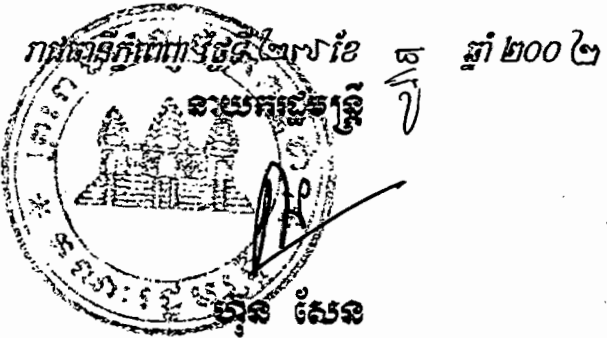 រាជធានីភ្នំពេញ ថ្ងៃទី ២៧ ខែ ធ្នូ ឆ្នាំ ២០០២
នាយករដ្ឋមន្ត្រី
ហ៊ុន សែន